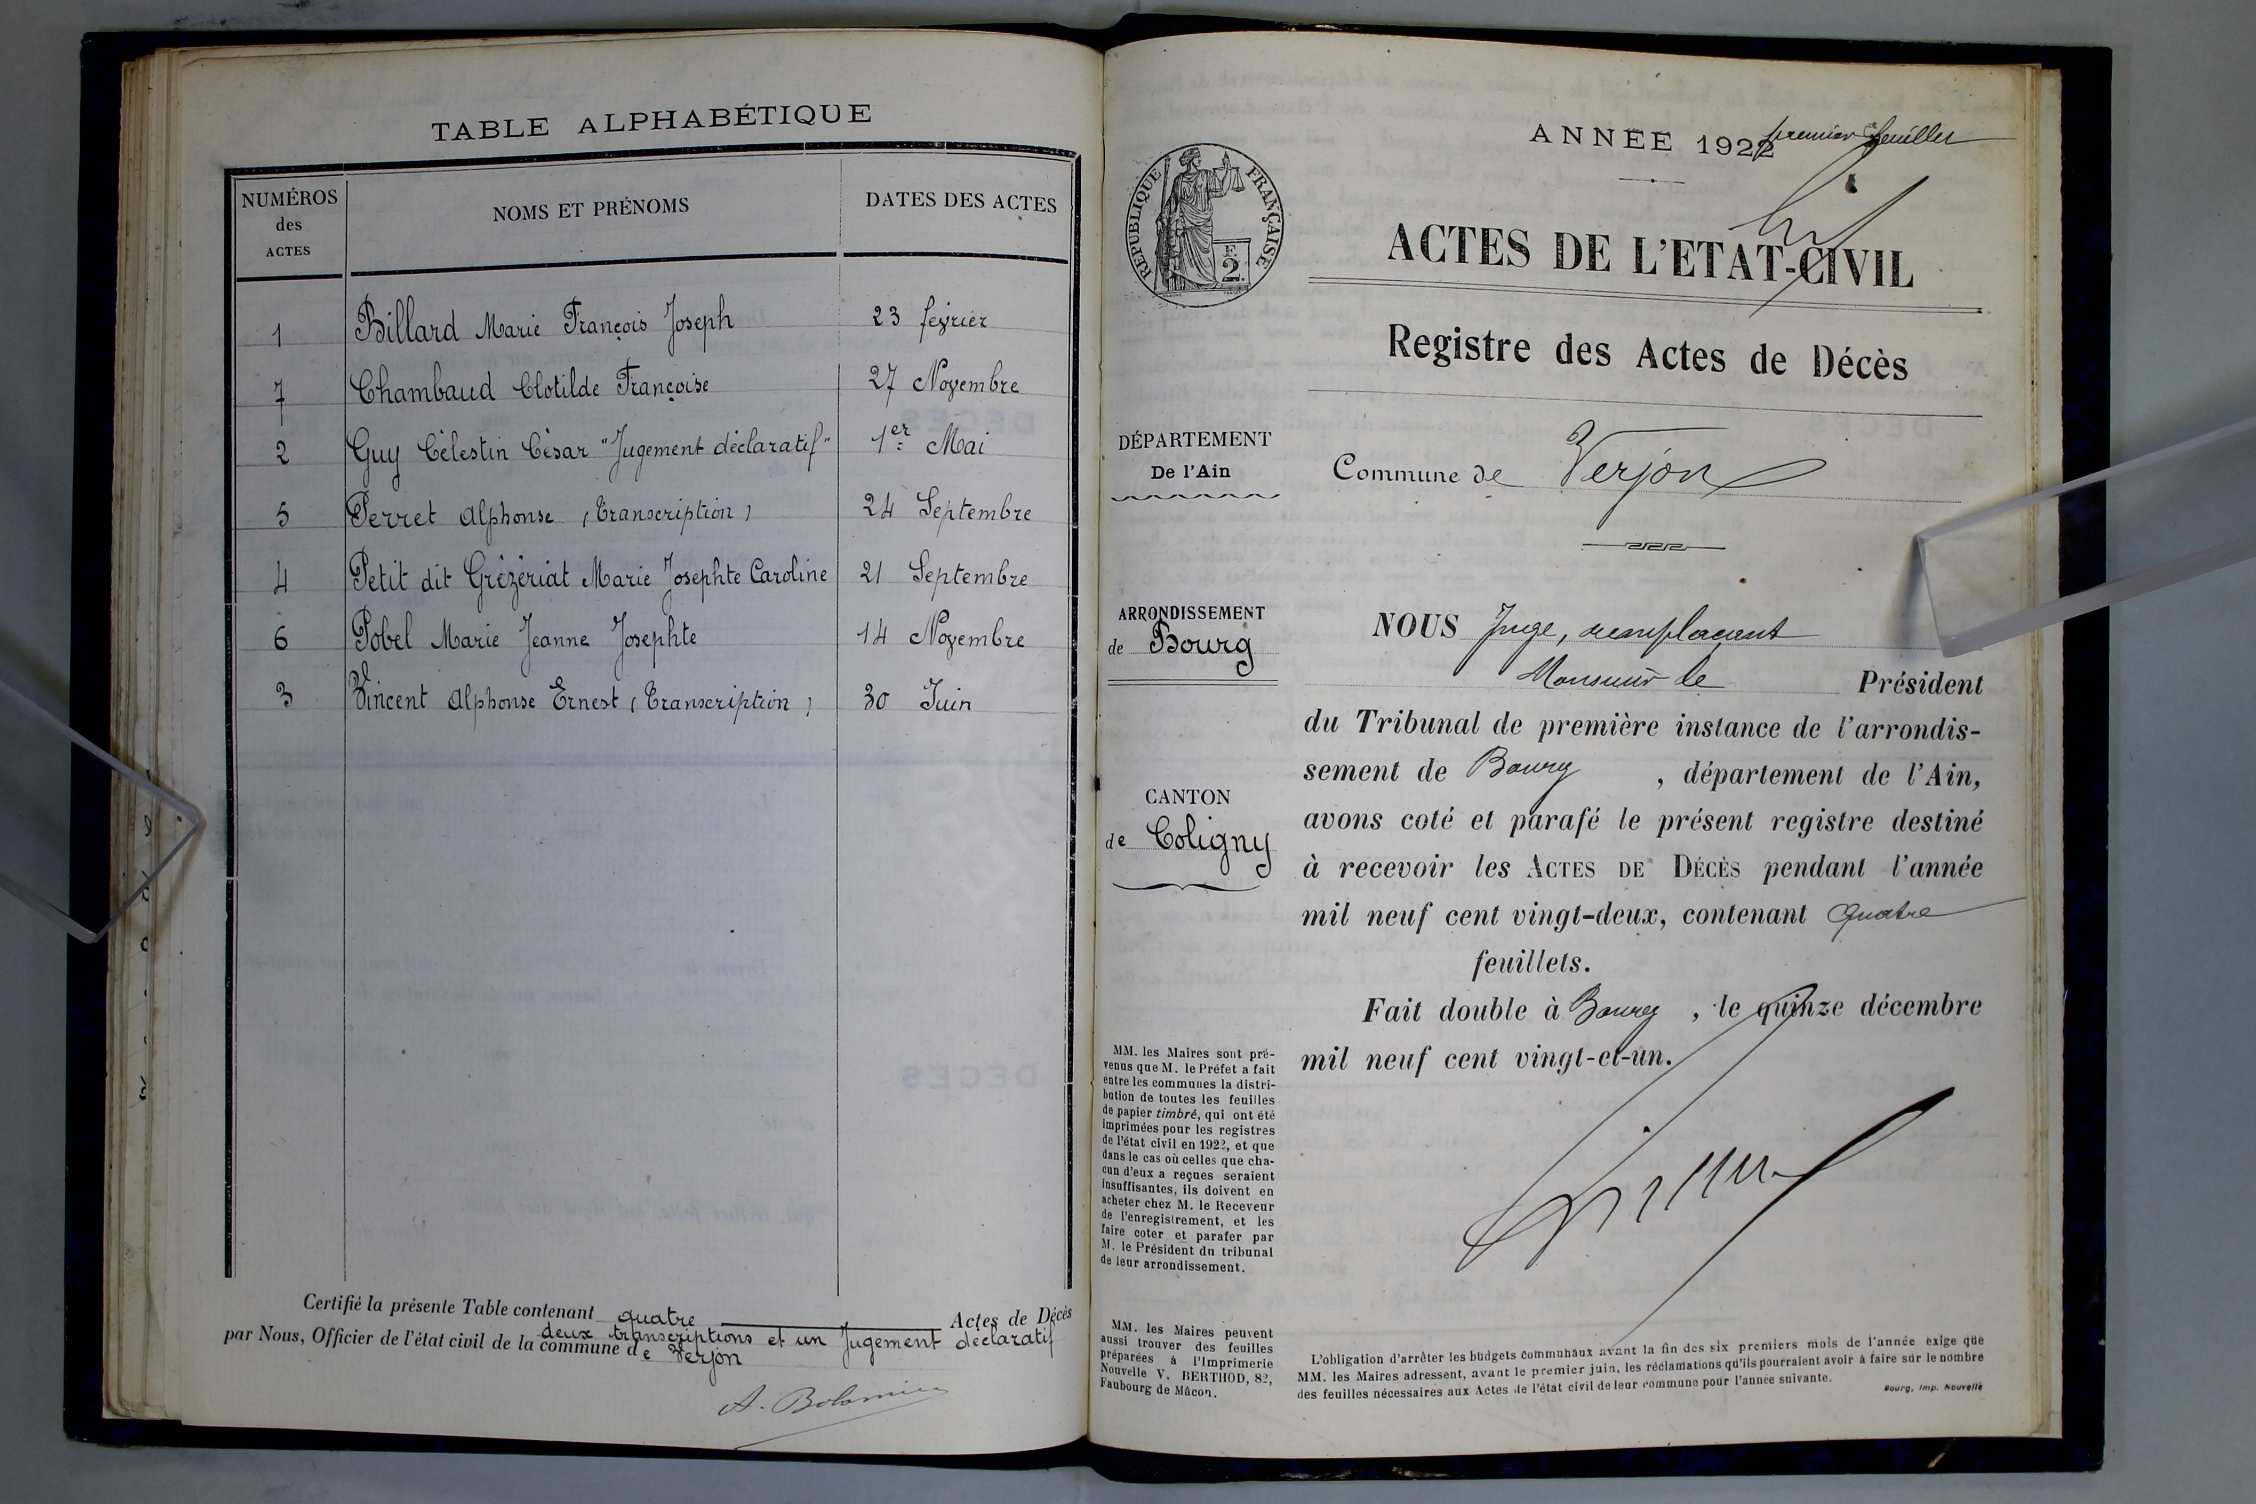 TABLE ALPHABÉTIQUE
NUMÉROS
des
ACTES
NOMS ET PRÉNOMS
DATES DES ACTES
1 Billard Marie François Joseph 23 février
7 Chambaud Clotilde Françoise 27 Novembre
2 Guy Célestin César "Jugement déclaratif" 1er Mai
5 Perret Alphonse (Transcription) 24 Septembre
4 Petit dit Grézériat Marie Josephte Caroline 21 Septembre
6 Pobel Marie Jeanne Josephte 14 Novembre
3 Vincent Alphonse Ernest (Transcription) 30 Juin
Certifié la présente Table contenant quatre Actes de Décès
deux transcriptions et un Jugement déclaratif
par Nous, Officier de l'état civil de la commune de Verjon
ANNÉE 1922
premier feuillet
REPUBLIQUE FRANÇAISE
F.
2.
ACTES DE L'ETAT-CIVIL
Registre des Actes de Décès
DÉPARTEMENT
De l'Ain
Commune de Verjon
ARRONDISSEMENT
de Bourg
CANTON
de Coligny
NOUS Juge, remplaçant
Monsieur le Président
du Tribunal de première instance de l'arrondis-
sement de Bourg, département de l'Ain,
avons coté et parafé le présent registre destiné
à recevoir les ACTES DE DÉCÈS pendant l'année
mil neuf cent vingt-deux, contenant Quatre
feuillets.
Fait double à Bourg, le quinze décembre
mil neuf cent vingt-et-un.
MM. les Maires sont pré-
venus que M. le Préfet a fait
entre les communes la distri-
bution de toutes les feuilles
de papier timbré, qui ont été
imprimées pour les registres
de l'état civil en 1922, et que
dans le cas où celles que cha-
cun d'eux a reçues seraient
insuffisantes, ils doivent en
acheter chez M. le Receveur
de l'enregistrement, et les
faire coter et parafer par
M. le Président du tribunal
de leur arrondissement.
MM. les Maires peuvent
aussi trouver des feuilles
préparées à l'Imprimerie
Nouvelle V. BERTHOD, 82,
Faubourg de Mâcon.
L'obligation d'arrêter les budgets communaux avant la fin des six premiers mois de l'année exige que
MM. les Maires adressent, avant le premier juin, les réclamations qu'ils pourraient avoir à faire sur le nombre
des feuilles nécessaires aux Actes de l'état civil de leur commune pour l'année suivante.
Bourg, Imp. Nouvelle